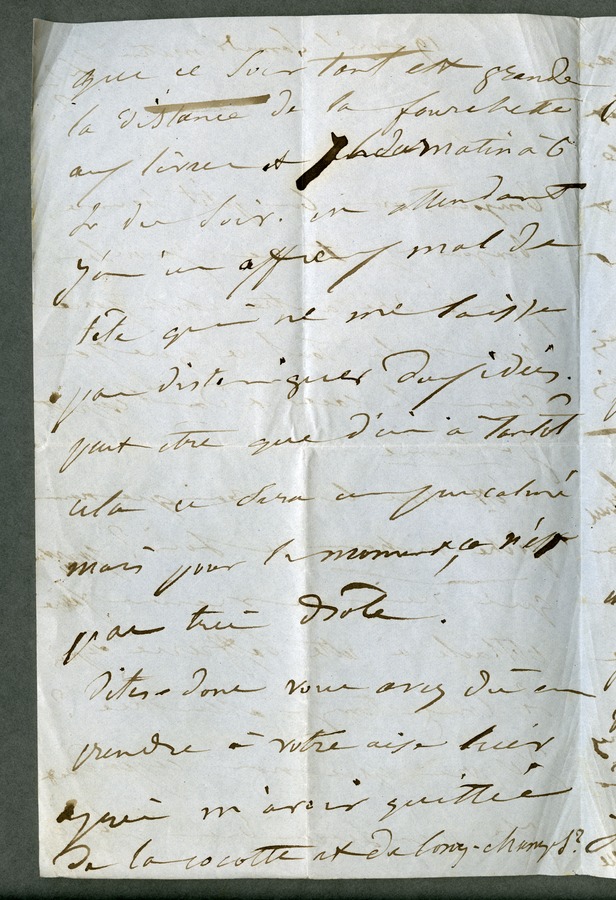 que ce soir tant est grande
la distance de la fourchette
aux lèvres et du matin à 6
h du soir. en attendant
j'ai un affreux mal de
tête qui ne me laisse
pas distinguer deux idées.
peut être que d'ici à tantôt
cela ce sera un peu calmé
mais pour le moment ce n'est
pas très drôle.
Dites-donc vous avez dû en
prendre à votre aise hier
après m'avoir quittée
de la cocotte et du long-champs?